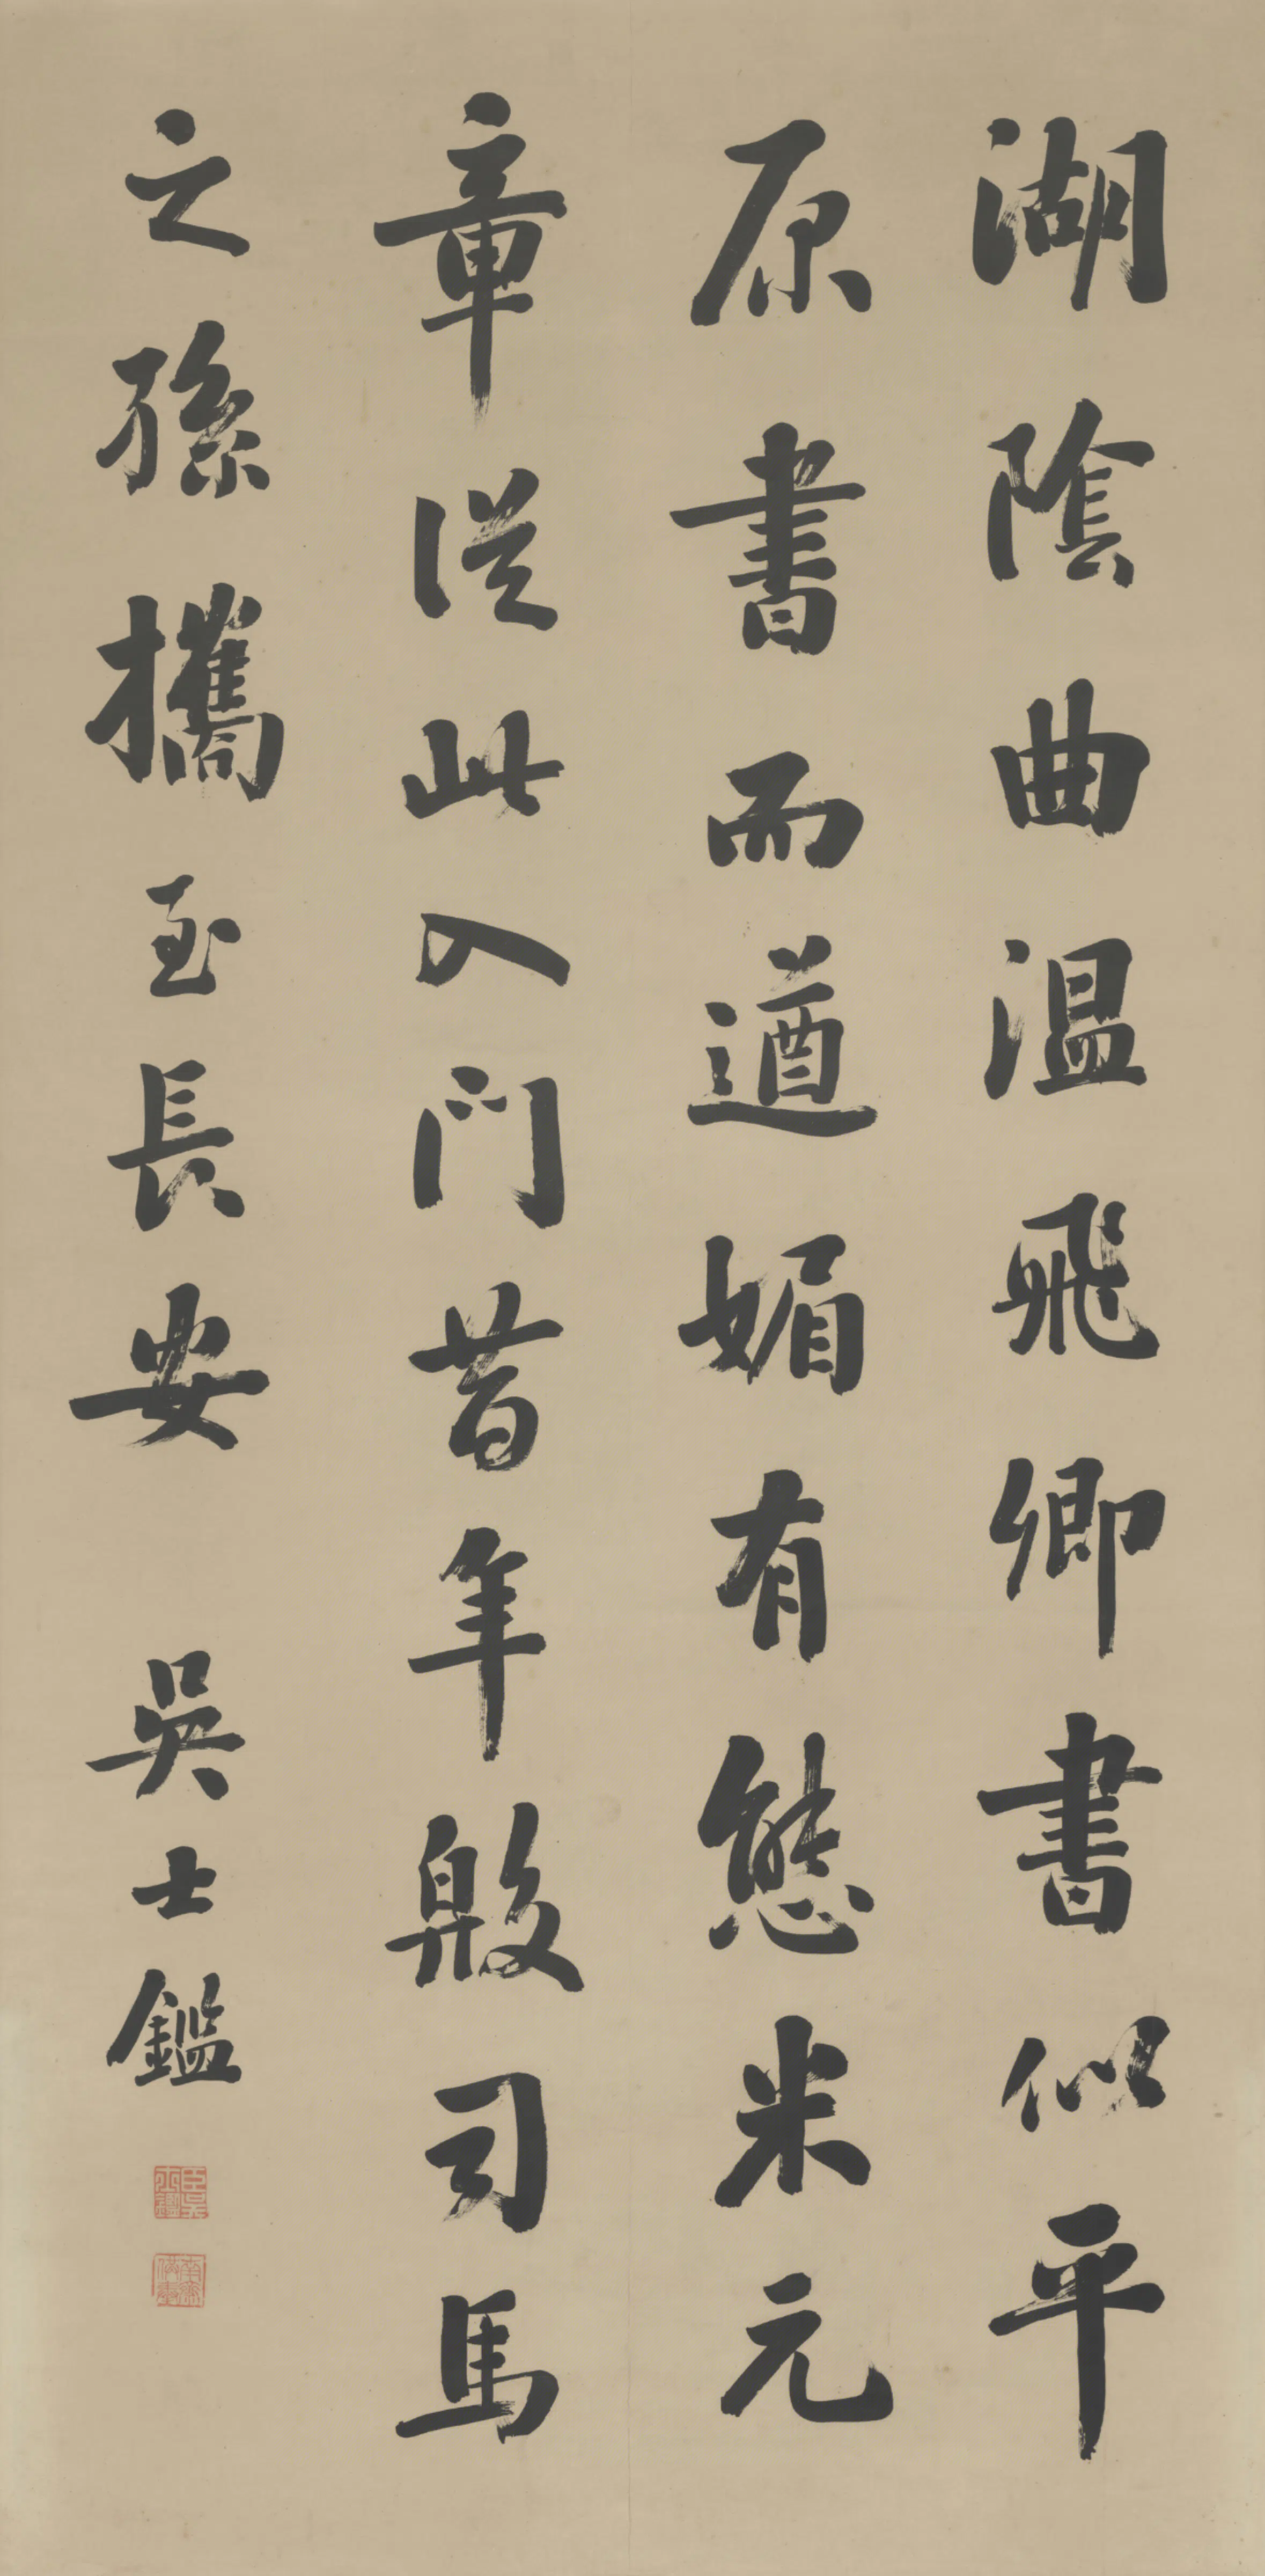 湖陰曲溫飛卿書似平
原書而遒媚有態米元
章從此入門昔年殷司馬
之孫攜至長安 吳士鑑
臣吳士鑑
南齋供奉